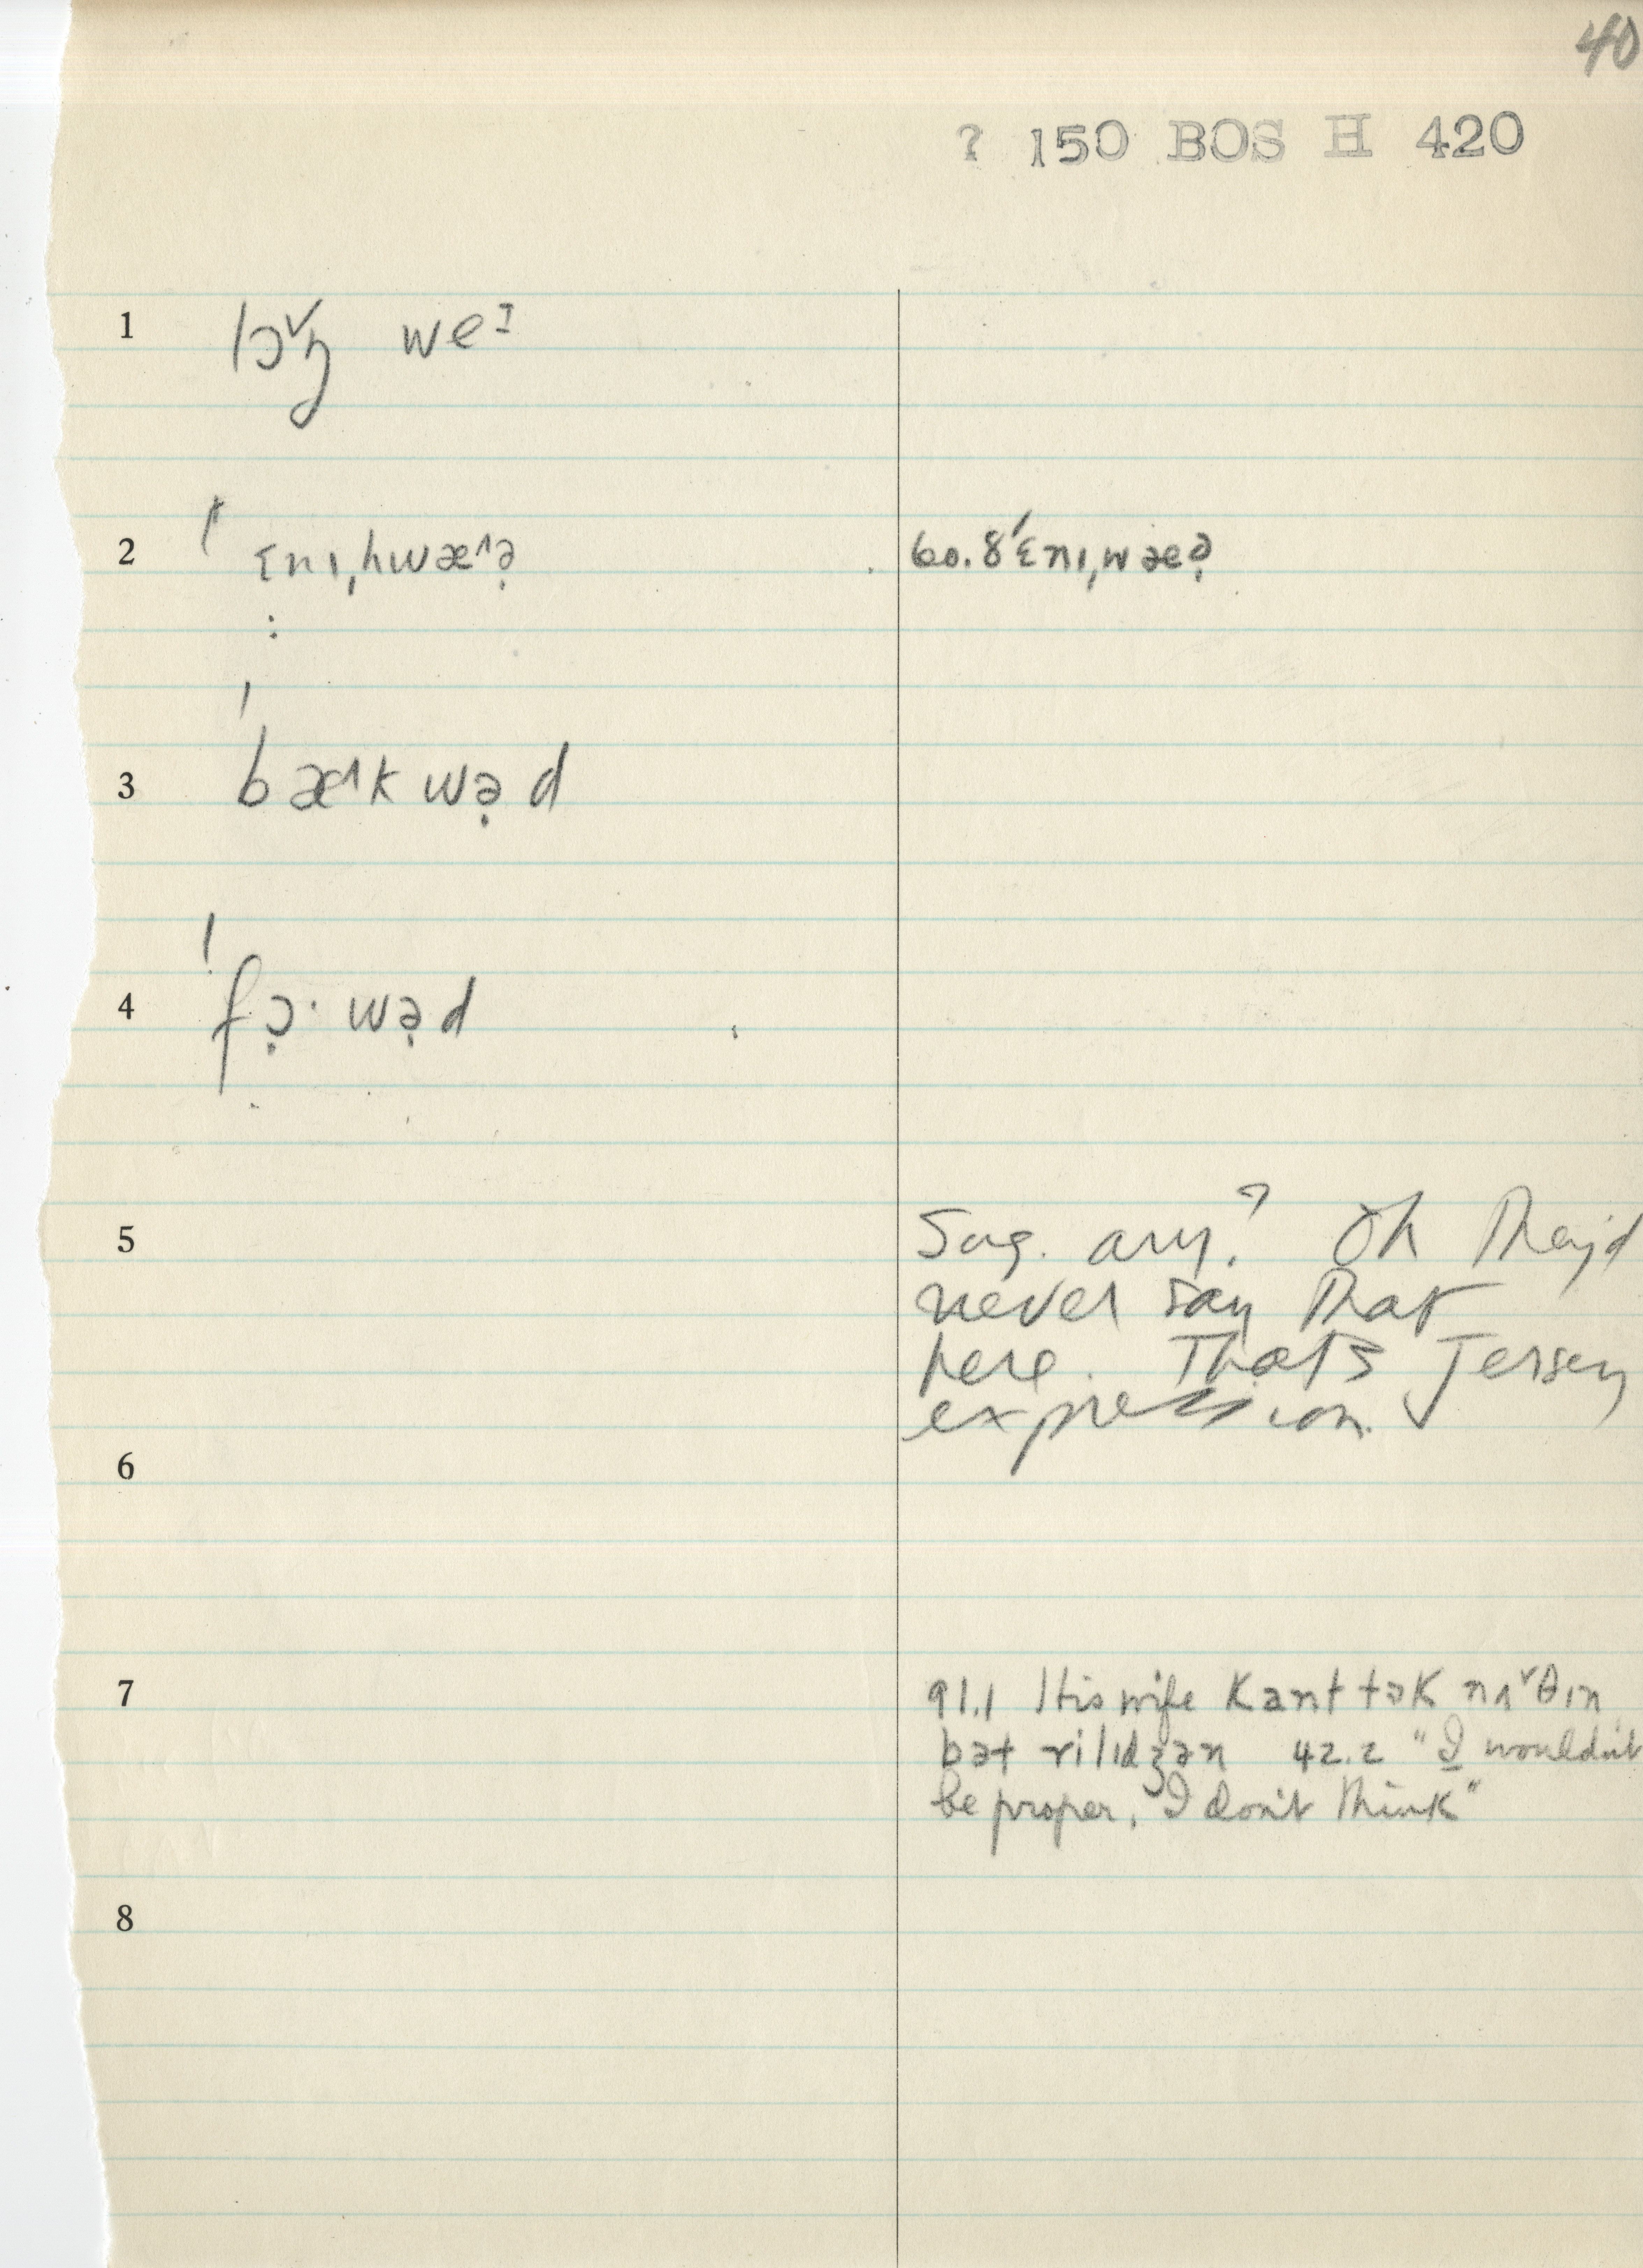 40
? 150 BOS H 420
1 lɔ˅ŋ weᶦ
2 ˈɛnɪˌhwæ˄ə̣ 60.8 ˈɛnɪˌwæə̣
:
3 ˈbæ˄kwə̣d
4 ˈfɔ̣·wə̣d
5 Sug. ary? Oh they'd
never say that
here. That's Jersey
expression.
6
7 91.1 His wife kant tɔk nʌ˅θɪn
bət rilɪdʒən 42.2 "I wouldn't
be proper, I don't think"
8